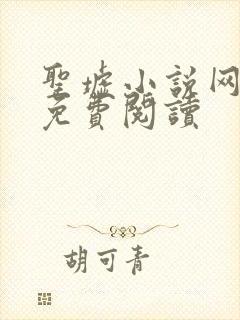 聖墟小説网
免費閱讀
胡可青